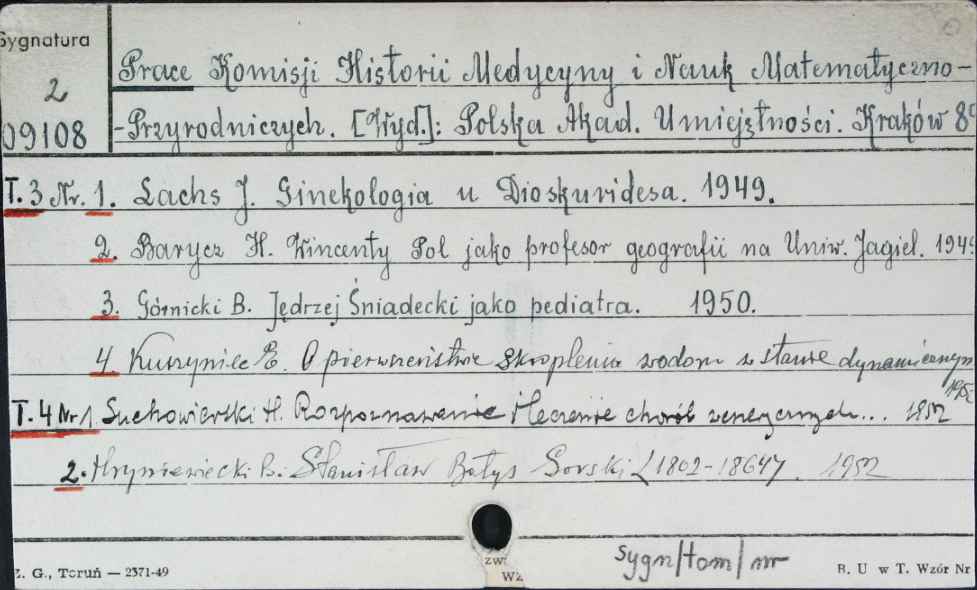 Sygnatura
2
09108
Prace Komisji Historii Medycyny i Nauk Matematyczno-
-Przyrodniczych. [Wyd.]: Polska Akad. Umiejętności. Kraków 8°
T. 3 Nr. 1. Lachs J. Ginekologia u Dioskuridesa. 1949.
2. Barycz H. Wincenty Pol jako profesor geografii na Uniw. Jagiel. 1949
3. Górnicki B. Jędrzej Śniadecki jako pediatra. 1950.
4. Kurzyniec E. O pierwszeństwie skroplenia wodoru w stanie dynamicznym
1952
T. 4 Nr 1. Suchowierski H. Rozpoznawanie i leczenie chorób wenerycznych... 1952
2. Hryniewiecki B. Stanisław Batys Gorski (1802-1864). 1952
sygn/tom/nr
Z. G., Toruń — 2371-49
B. U w T. Wzór Nr